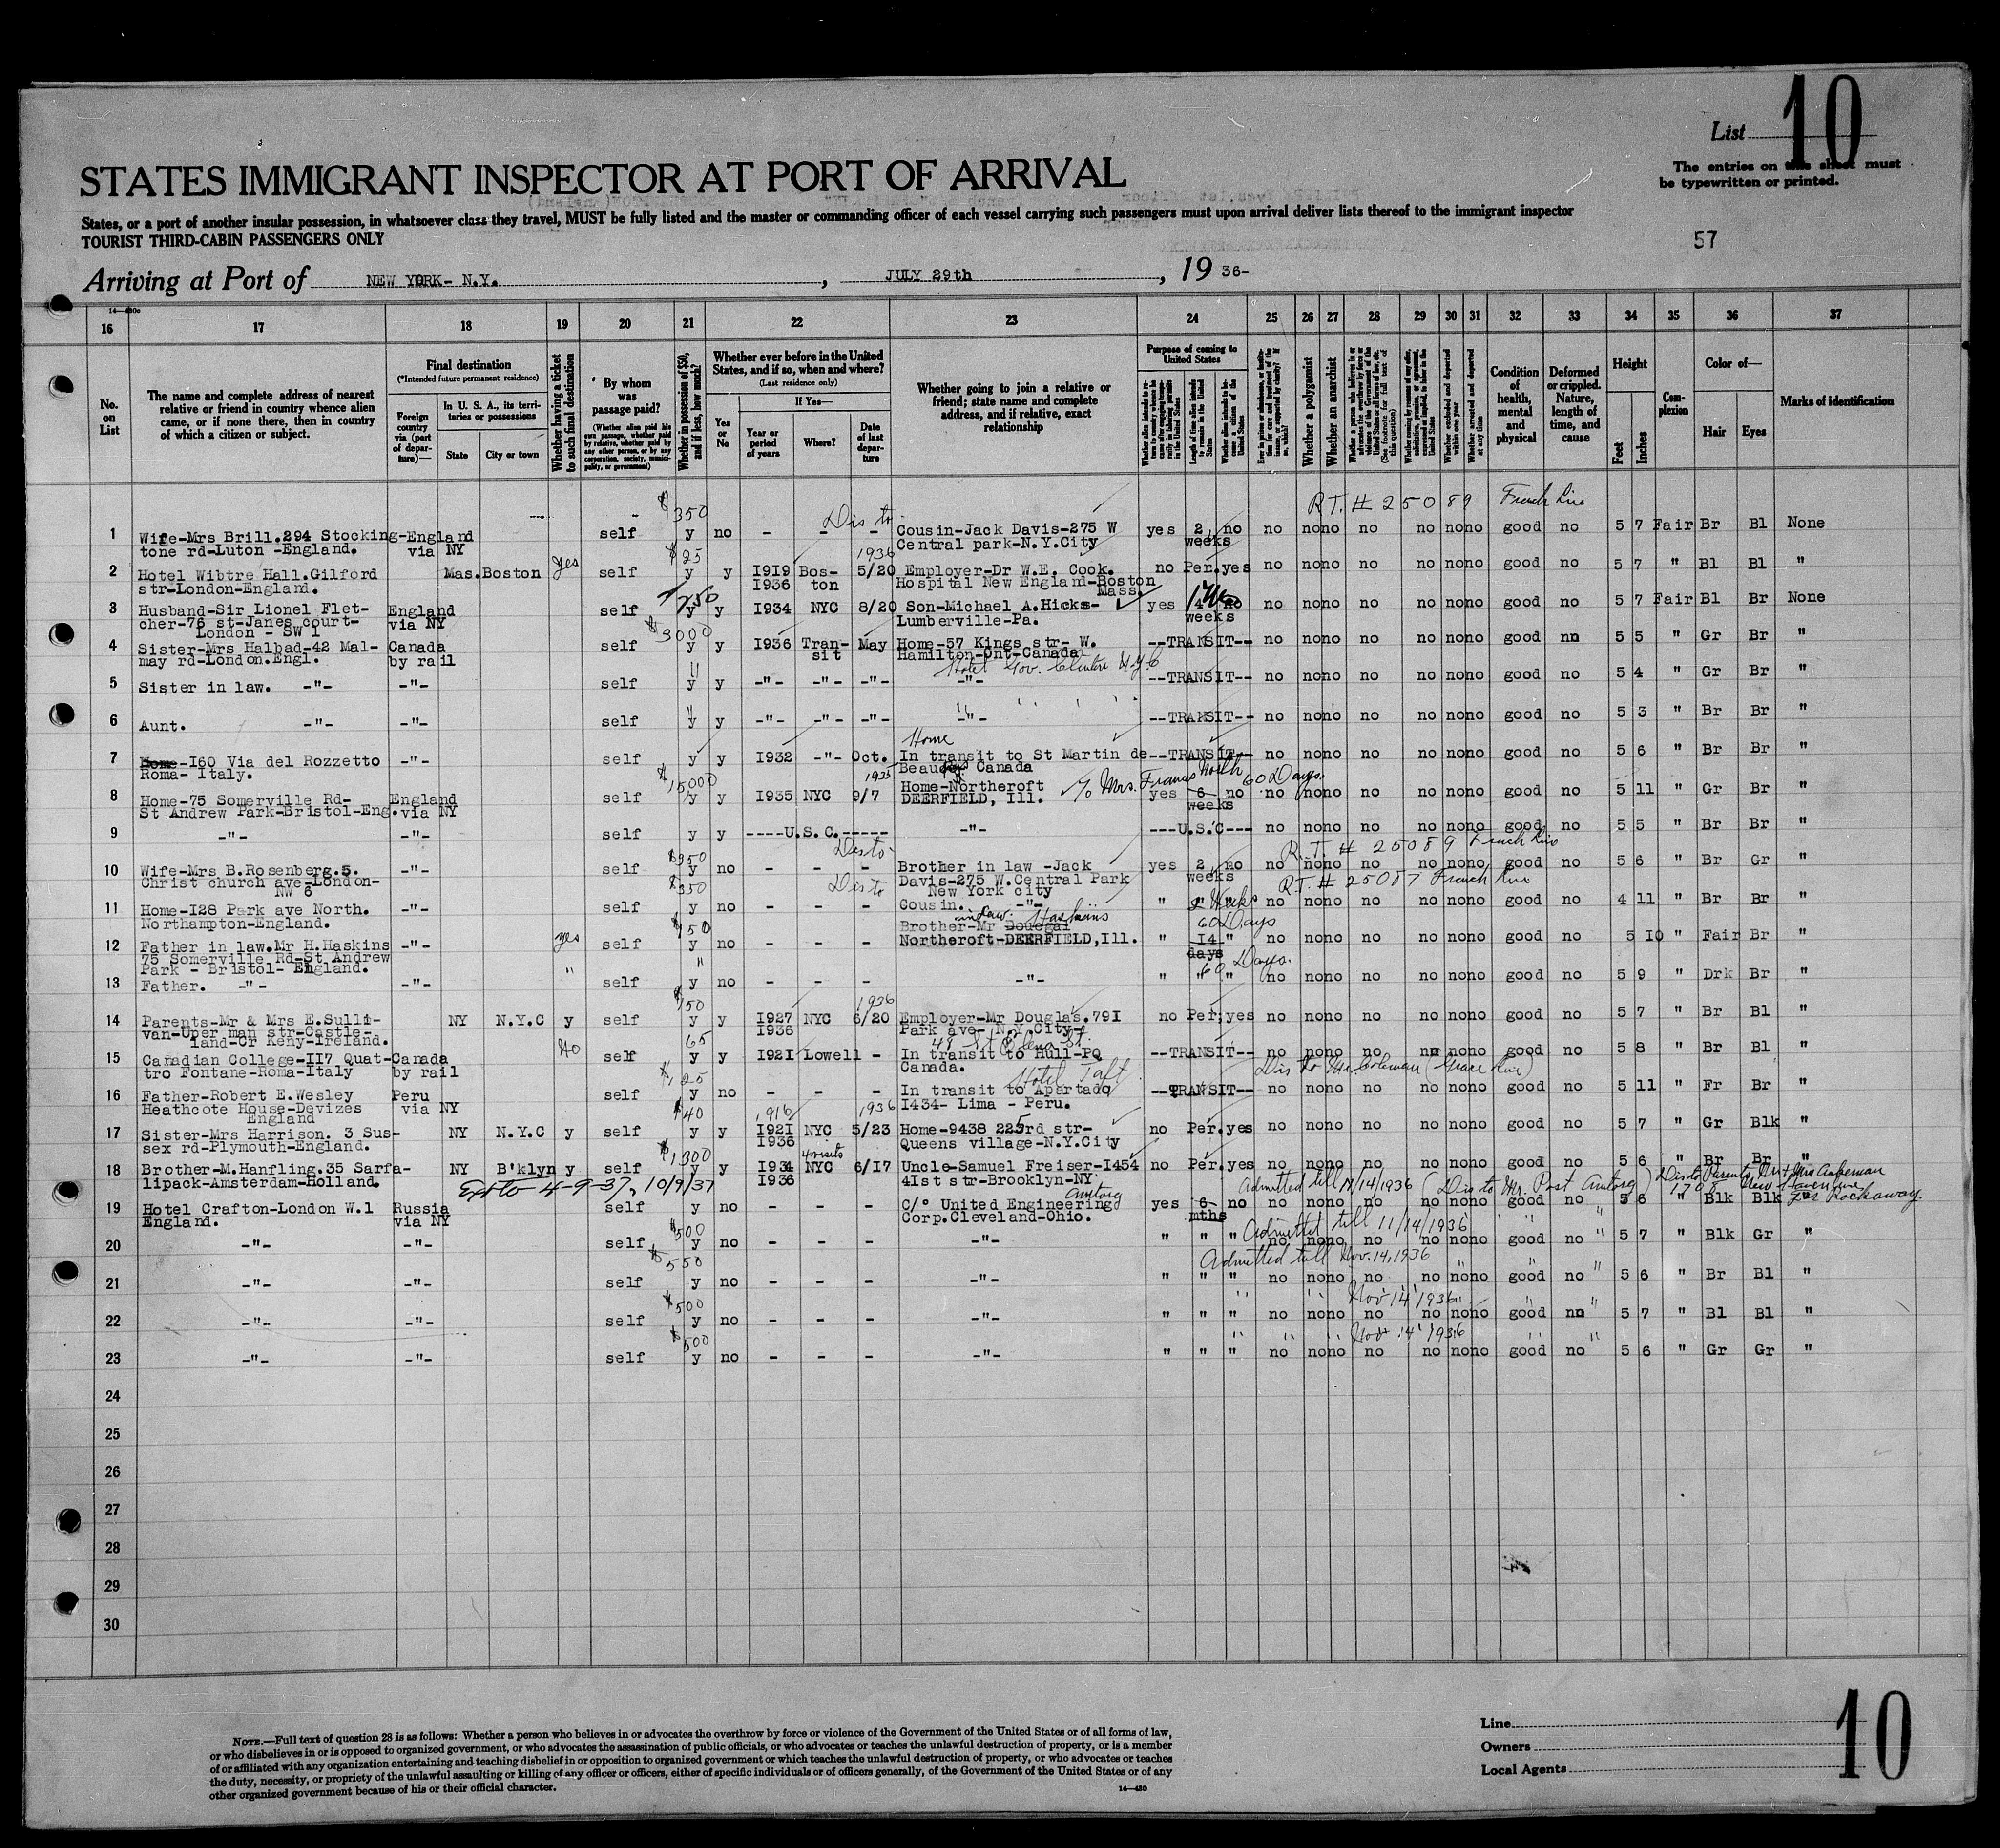 List 10
The entries on this sheet must
be typewritten or printed.
STATES IMMIGRANT INSPECTOR AT PORT OF ARRIVAL
States, or a port of another insular possession, in whatsoever class they travel, MUST be fully listed and the master or commanding officer of each vessel carrying such passengers must upon arrival deliver lists thereof to the immigrant inspector
TOURIST THIRD-CABIN PASSENGERS ONLY
57
Arriving at Port of NEW YORK- N.Y. , JULY 29th , 19 36-
16 17 18 19 20 21 22 23 24 25 26 27 28 29 30 31 32 33 34 35 36 37
No. on List
The name and complete address of nearest relative or friend in country whence alien came, or if none there, then in country of which a citizen or subject.
Final destination
(*Intended future permanent residence)
Foreign country via (port of departure)—
In U. S. A., its territories or possessions
State
City or town
Whether having a ticket to such final destination
By whom was passage paid?
(Whether alien paid his own passage, whether paid by relative, whether paid by any other person, or by any corporation, society, municipality, or government)
Whether in possession of $50, and if less, how much?
Whether ever before in the United States, and if so, when and where?
(Last residence only)
Yes or No
If Yes—
Year or period of years
Where?
Date of last departure
Whether going to join a relative or friend; state name and complete address, and if relative, exact relationship
Purpose of coming to United States
Whether a polygamist
Whether an anarchist
Condition of health, mental and physical
Deformed or crippled. Nature, length of time, and cause
Height
Feet
Inches
Complexion
Color of—
Hair
Eyes
Marks of identification
R.T. # 25089 French Line
$350 Dis to
1 Wife-Mrs Brill.294 Stocking-England self y no - - - Cousin-Jack Davis-275 W yes 2 no no nono no no nono good no 5 7 Fair Br Bl None
tone rd-Luton -England. via NY Central park-N.Y.City weeks
yes $25 1936
2 Hotel Wibtre Hall.Gilford Mas.Boston self y y I9I9 Bos- 5/20 Employer-Dr W.E. Cook. no Per.yes no nono no no nono good no 5 7 " Bl Bl "
str-London-England. I936 ton Hospital New England-Boston
Mass.
3 Husband-Sir Lionel Flet- England self y y I934 NYC 8/20 Son-Michael A.Hicks- yes 4 no no nono no no nono good no 5 7 Fair Bl Br None
cher-76 st-Janes court- via NY Lumberville-Pa. weeks
London - SW 1
$3000
4 Sister-Mrs Halbad-42 Mal- Canada self y y I936 Tran- May Home-57 Kings str- W. --TRANSIT-- no nono no no nono good no 5 5 " Gr Br "
may rd-London.Engl. by rail sit Hamilton-Ont-Canada
Hotel Gov. Clinton N.Y.C
5 Sister in law. -"- -"- self y y -"- -"- -"- -"- --TRANSIT-- no nono no no nono good no 5 4 " Gr Br "
6 Aunt. -"- -"- self y y -"- -"- -"- -"- --TRANSIT-- no nono no no nono good no 5 3 " Br Br "
Home
7 Home-I60 Via del Rozzetto -"- self y y I932 -"- Oct. In transit to St Martin de --TRANSIT-- no nono no no nono good no 5 6 " Br Br "
Roma- Italy. Canada
$15000 1935 c/o Mrs. Francis North 60 Days.
8 Home-75 Somerville Rd- England self y y I935 NYC 9/7 Home-Northcroft yes 6 no no nono no no nono good no 5 11 " Gr Br "
St Andrew Park-Bristol-Eng.via NY DEERFIELD, Ill. weeks
9 -"- -"- self y y ----U.S.C.----- -"- ---U.S.C--- no nono no no nono good no 5 5 " Br Br "
$350 Dis to R.T. # 25089 French Line
10 Wife-Mrs B.Rosenberg.5. -"- self y no - - - Brother in law -Jack yes 2 no no nono no no nono good no 5 6 " Br Gr "
Christ church ave-London- Davis-275 W.Central Park weeks
NW 6 New York city
$350 Dis to R.T. # 25087 French Line
11 Home-I28 Park ave North. -"- self y no - - - Cousin. -"- " 2 Weeks no nono no no nono good no 4 11 " Br Br "
Northampton-England.
yes $150 in Law. Haskins 60 Days
12 Father in law.Mr H.Haskins -"- self y no - - - Brother-Mr Northcroft-DEERFIELD,Ill. " I4 " no nono no no nono good no 5 I0 " Fair Br "
75 Somerville Rd-St Andrew days
Park - Bristol- England.
60 Days.
13 Father. -"- -"- self y no - - - -"- " " " no nono no no nono good no 5 9 " Drk Br "
$150 1936
14 Parents-Mr & Mrs E.Sulli- NY N.Y.C y self y y I927 NYC 6/20 Employer-Mr Douglas.79I no Per.yes no nono no no nono good no 5 7 " Br Bl "
van-Uper man str-Castle- I936 Park ave- N.Y.City-
land-Cr Keny-Ireland.
No 65
15 Canadian College-II7 Quat-Canada self y y I92I Lowell - In transit to Hull-PQ --TRANSIT-- no nono no no nono good no 5 8 " Br Bl "
tro Fontane-Roma-Italy by rail Canada.
$125 Hotel Taft. Dis to Mr. Coleman (Grace Line)
16 Father-Robert E.Wesley Peru self y no - - - In transit to Apartado --TRANSIT-- no nono no no nono good no 5 11 " Fr Br "
Heathcote House-Devizes via NY I434- Lima - Peru.
England
$40 1916 1936
17 Sister-Mrs Harrison. 3 Sus- NY N.Y.C y self y y I92I NYC 5/23 Home-9438 225rd str- no Per.yes no nono no no nono good no 5 7 " Gr Blk "
sex rd-Plymouth-England. I936 Queens village-N.Y.City
$1300 4 visits
18 Brother-M.Hanfling.35 Sarfa- NY B'klyn y self y y I934 NYC 6/17 Uncle-Samuel Freiser-I454 no Per.yes no nono no no nono good no 5 6 " Br Br "
lipack-Amsterdam-Holland. I936 4Ist str-Brooklyn-NY
Ext to 4-9-37, 10/9/37 Amtorg Admitted till 11/14/1936 (Dis to Mr. Post Amtorg)
19 Hotel Crafton-London W.1 Russia self y no - - - C/o United Engineering yes 6 no no nono no no nono good no 5 6 " Blk Blk
England. via NY Corp.Cleveland-Ohio. mths
Far Rockaway.
$500 Admitted till 11/14/1936
20 -"- -"- self y no - - - -"- " " " no nono no no nono good no 5 7 " Blk Gr "
$550 Admitted till Nov.14,1936
21 -"- -"- self y no - - - -"- " " " no nono no no nono good no 5 6 " Br Bl "
$500 Nov 14 1936
22 -"- -"- self y no - - - -"- " " " no nono no no nono good no 5 7 " Bl Bl "
$500 Nov 14 1936
23 -"- -"- self y no - - - -"- " " " no nono no no nono good no 5 6 " Gr Gr "
24
25
26
27
28
29
30
NOTE.—Full text of question 28 is as follows: Whether a person who believes in or advocates the overthrow by force or violence of the Government of the United States or of all forms of law,
or who disbelieves in or is opposed to organized government, or who advocates the assassination of public officials, or who advocates or teaches the unlawful destruction of property, or is a member
of or affiliated with any organization entertaining and teaching disbelief in or opposition to organized government or which teaches the unlawful destruction of property, or who advocates or teaches
the duty, necessity, or propriety of the unlawful assaulting or killing of any officer or officers, either of specific individuals or of officers generally, of the Government of the United States or of any
other organized government because of his or their official character.
14—430
Line
Owners
Local Agents
10